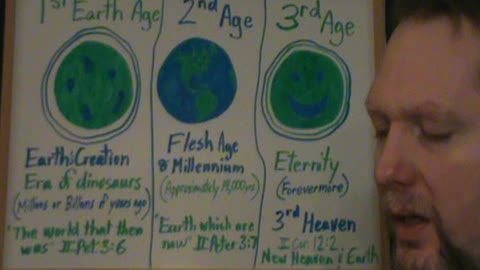 1st Earth Age
Earth: Creation
Era of dinosaurs
(Millions or Billions of years ago)
"The world that then
was" II Pet. 3:6
2nd Age
Flesh Age
& Millennium
(Approximately
"Earth which are
now" II Peter 3:7
3rd Age
Eternity
(Forevermore)
3rd Heaven
II Cor. 12:2
New Heaven & Earth